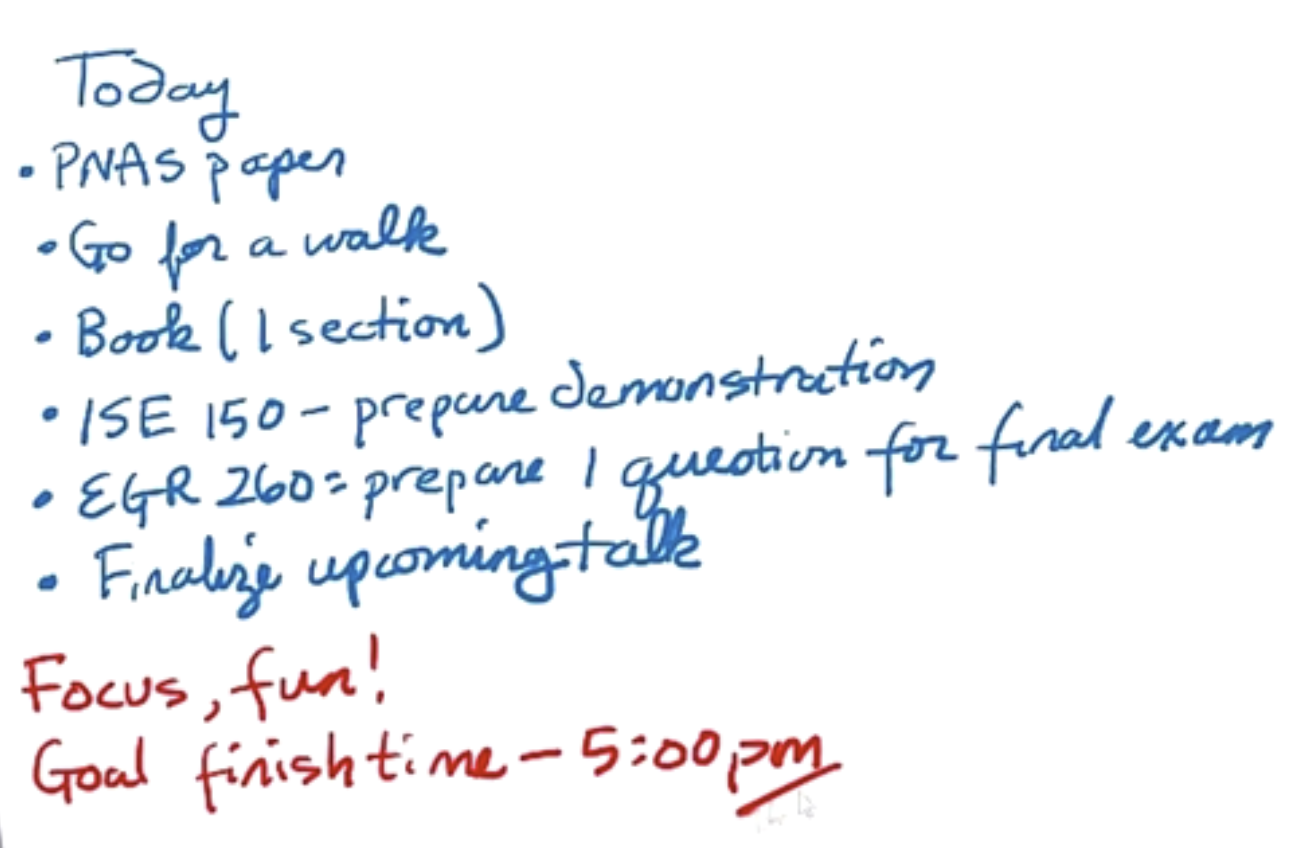 Today
• PNAS paper
• Go for a walk
• Book (1 section)
• ISE 150 – prepare demonstration
• EGR 260 = prepare 1 question for final exam
• Finalize upcoming talk
Focus, fun!
Goal finish time – 5:00 pm